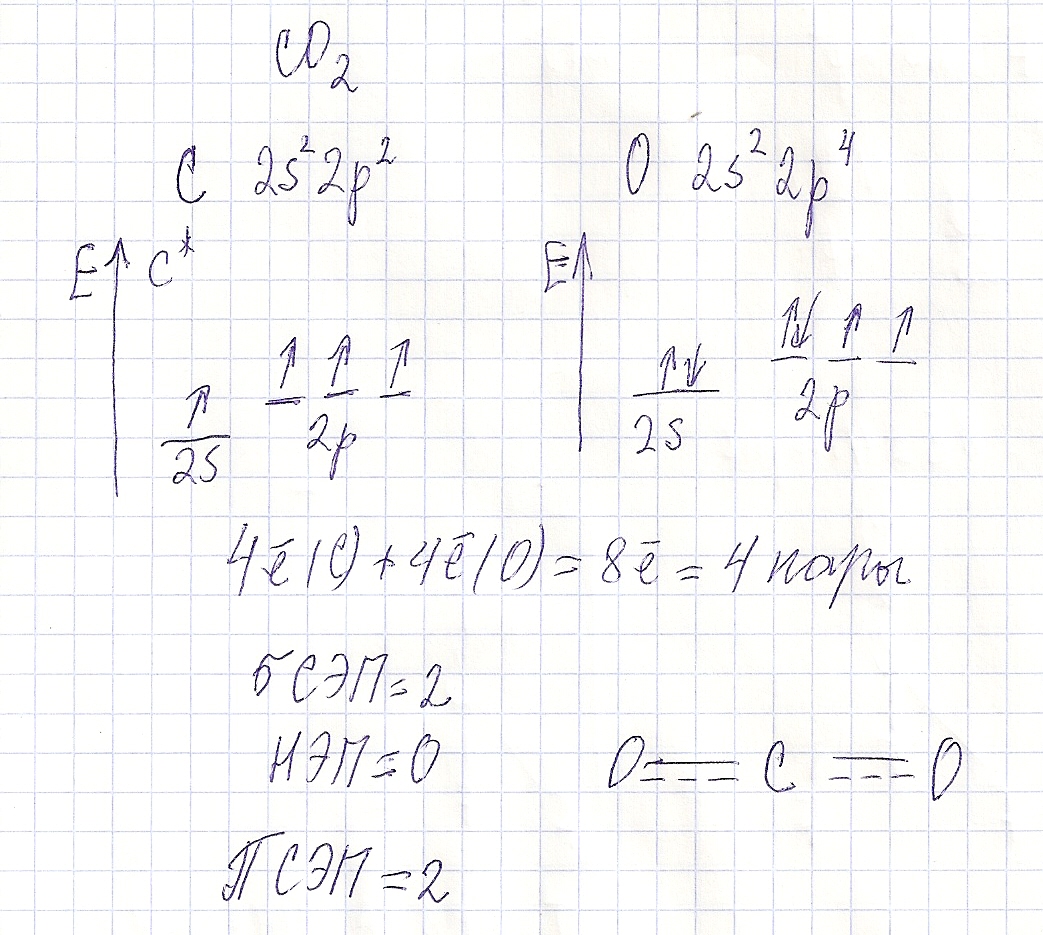 CO₂
C 2s²2p² O 2s²2p⁴
E↑ C* E↑
↑ ↑ ↑ ↑ ↑↓ ↑↓ ↑ ↑
2s 2p 2s 2p
4ē(C)+4ē(O)=8ē=4 пары
σСЭП=2
НЭП=0
O=C=O
πСЭП=2